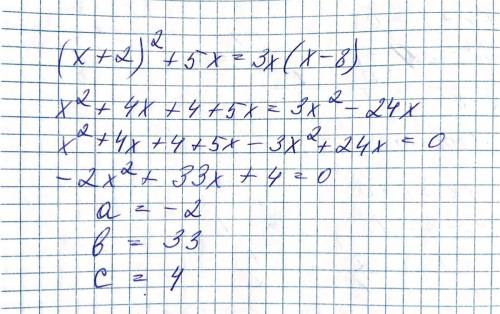 (x+2)² + 5x = 3x(x-8)
x² + 4x + 4 + 5x = 3x² - 24x
x² + 4x + 4 + 5x - 3x² + 24x = 0
-2x² + 33x + 4 = 0
a = -2
b = 33
c = 4